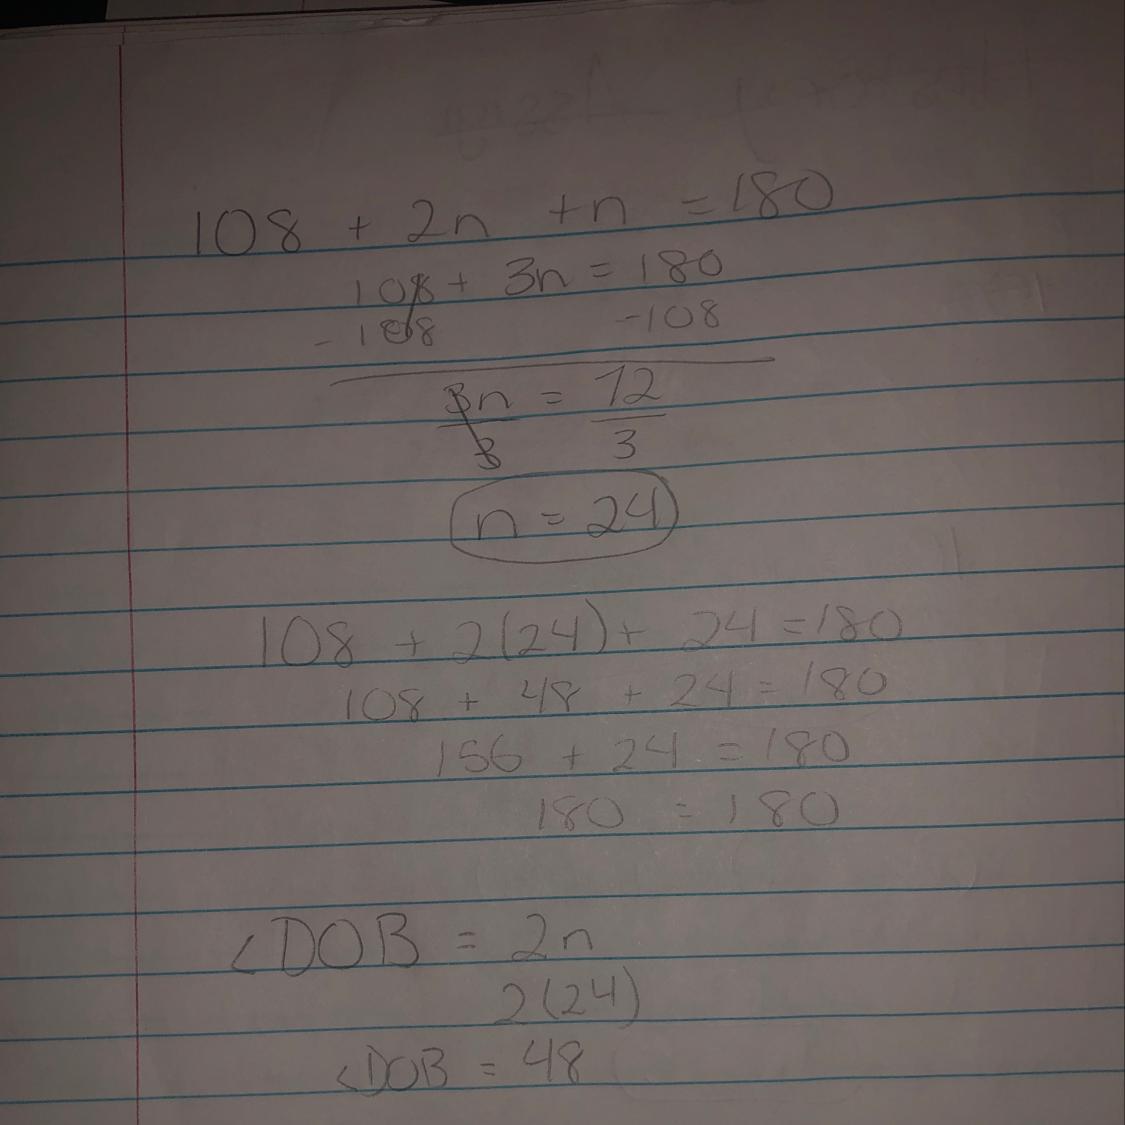 108 + 2n + n = 180
108 + 3n = 180
- 108 -108
3n = 72
3 3
n = 24
108 + 2(24) + 24 = 180
108 + 48 + 24 = 180
156 + 24 = 180
180 = 180
<DOB = 2n
2(24)
<DOB = 48